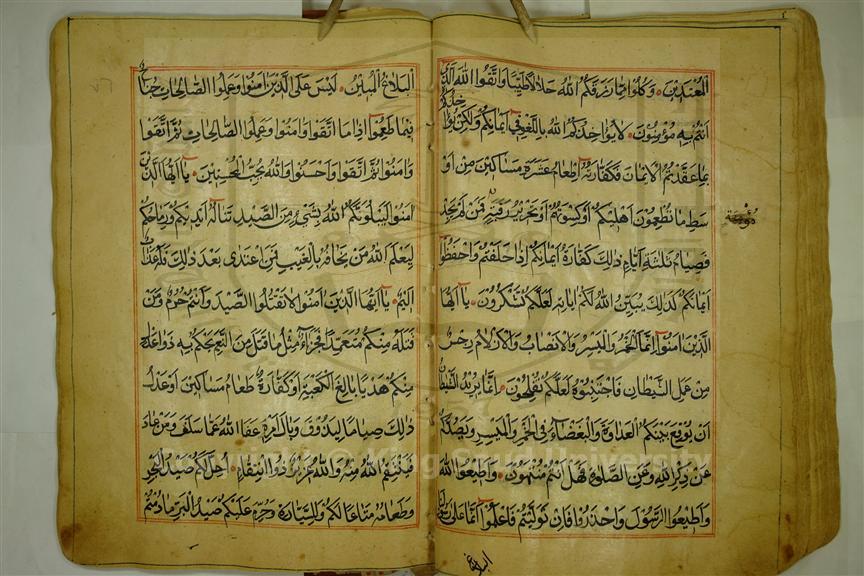 المعتدين وكلوا مما رزقكم الله حلالا طيبا واتقوا الله الذي
انتم به مؤمنون لا يؤاخذكم الله باللغو في ايمانكم ولكن يؤاخذكم
بما عقدتم الايمان فكفارته اطعام عشرة مساكين من او
سط ما تطعمون اهليكم او كسوتهم او تحرير رقبة فمن لم يجد
فصيام ثلثة ايام ذلك كفارة ايمانكم اذا حلفتم واحفظوا
ايمانكم كذلك يبين الله لكم اياته لعلكم تشكرون يا ايها
الذين امنوا انما الخمر والميسر والانصاب والازلام رجس
من عمل الشيطان فاجتنبوه لعلكم تفلحون انما يريد الشيطان
ان يوقع بينكم العداوة والبغضاء في الخمر والميسر ويصدكم
عن ذكر الله وعن الصلوة فهل انتم منتهون واطيعوا الله
واطيعوا الرسول واحذروا فان توليتم فاعلموا انما على رسولنا
البلاغ
البلاغ المبين ليس على الذين امنوا وعملوا الصالحات جناح
فيما طعموا اذا ما اتقوا وامنوا وعملوا الصالحات ثم اتقوا
وامنوا ثم اتقوا واحسنوا والله يحب المحسنين يا ايها الذين
امنوا ليبلونكم الله بشيء من الصيد تناله ايديكم ورماحكم
ليعلم الله من يخافه بالغيب فمن اعتدى بعد ذلك فله عذاب
اليم يا ايها الذين امنوا لا تقتلوا الصيد وانتم حرم ومن
قتله منكم متعمدا فجزاء مثل ما قتل من النعم يحكم به ذوا عدل
منكم هديا بالغ الكعبة او كفارة طعام مساكين او عدل
ذلك صياما ليذوق وبال امره عفا الله عما سلف ومن عاد
فينتقم الله منه والله عزيز ذو انتقام احل لكم صيد البحر
وطعامه متاعا لكم وللسيارة وحرم عليكم صيد البر ما دمتم
© King Saud University